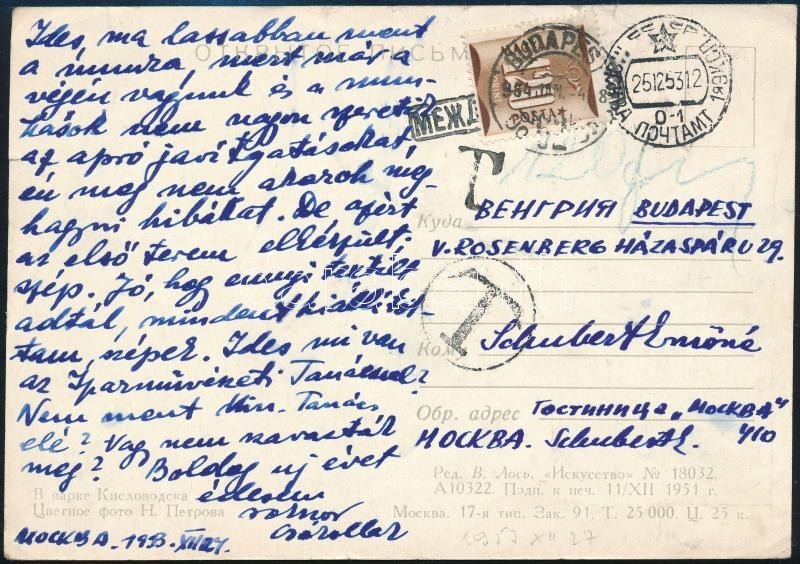 ОТКРЫТОЕ ПИСЬМО
Ides, ma lassabban ment
a munka, mert már a
végén vagyunk és a mun-
kások nem nagyon szeretik
az apró javítgatásokat,
én meg nem akarok meg-
hagyni hibákat. De azért
az első terem elkészült,
szép. Jó, hogy ennyi textilt
adtál, mindent kiállítot-
tam, szépek. Ides mi van
az Iparművészeti Tanáccsal?
Nem ment Min. Tanács
elé? Vagy nem zavarták
meg? Boldog uj évet
édesem
csókollak
МОСКВА. 1953. XII 27.
В парке Кисловодска
Цветное фото Н. Петрова
BUDAPEST
МЕЖД
25125312
ПОЧТАМТ
T
T
Куда
ВЕНГРИЯ BUDAPEST
V. ROSENBERG HÁZASPÁR U 29.
Кому
Schubert Ernőné
Обр. адрес
ГОСТИНИЦА „МОСКВА"
МОСКВА. Schubert E. 410
Ред. В. Лось. «Искусство» № 18032.
А10322. Подп. к печ. 11/XII 1951 г.
Москва. 17-я тип. Зак. 91. Т. 25 000. Ц. 25 к.
1953 XII 27